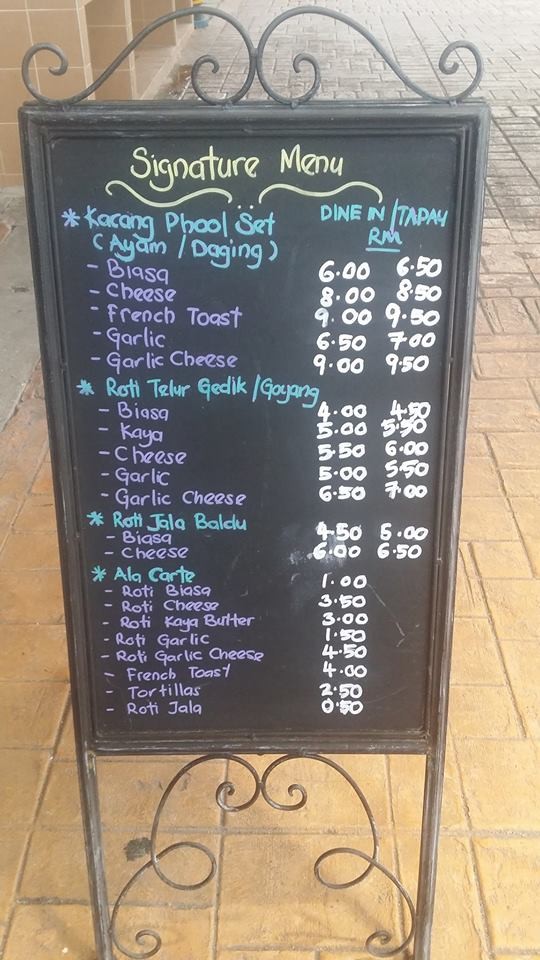 Signature Menu
* Kacang Phool Set DINE IN / TAPAU
(Ayam / Daging) RM
- Biasa 6.00 6.50
- Cheese 8.00 8.50
- French Toast 9.00 9.50
- Garlic 6.50 7.00
- Garlic Cheese 9.00 9.50
* Roti Telur Gedik / Goyang
- Biasa 4.00 4.50
- Kaya 5.00 5.50
- Cheese 5.50 6.00
- Garlic 5.00 5.50
- Garlic Cheese 6.50 7.00
* Roti Jala Baldu
- Biasa 4.50 5.00
- Cheese 6.00 6.50
* Ala Carte
- Roti Biasa 1.00
- Roti Cheese 3.50
- Roti Kaya Butter 3.00
- Roti Garlic 1.50
- Roti Garlic Cheese 4.50
- French Toast 4.00
- Tortillas 2.50
- Roti Jala 0.50